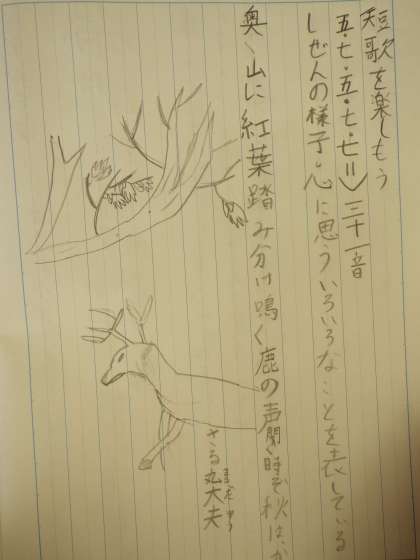 短歌を楽しもう
五・七・五・七・七＝三十一音
しぜんの様子・心に思ういろいろなことを表している
奥山に紅葉踏み分け鳴く鹿の声聞く時ぞ秋は、か
さる丸大夫